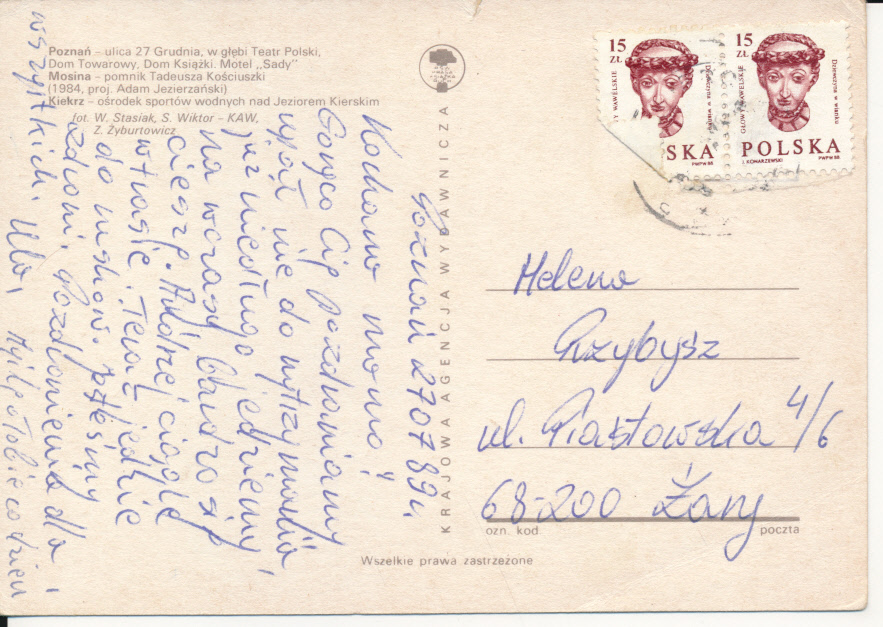 Poznań – ulica 27 Grudnia, w głębi Teatr Polski,
Dom Towarowy, Dom Książki. Motel „Sady”
Mosina – pomnik Tadeusza Kościuszki
(1984, proj. Adam Jezierzański)
Kiekrz – ośrodek sportów wodnych nad Jeziorem Kierskim
fot. W. Stasiak, S. Wiktor – KAW,
Z. Żyburtowicz
KRAJOWA AGENCJA WYDAWNICZA
Poznań 27 07 89r.
Kochana mamo!
Gorąco Cię pozdrawiamy
upał nie do wytrzymania,
już niedługo jedziemy
na wczasy, bardzo się
cieszę. Andrzej ciągle
w trasie. Teraz jedzie
do
zdrowi. Pozdrowienia dla
wszystkich. Ula, Myślę o Tobie co dzień
15 ZŁ
SKA
PWPW 86
15 ZŁ
GŁOWY WAWELSKIE
POLSKA
S. KOMARZEWSKI
PWPW 86
Helena
Przybysz
ul. Piastowska 4/6
68-200 Żary
ozn. kod
poczta
Wszelkie prawa zastrzeżone